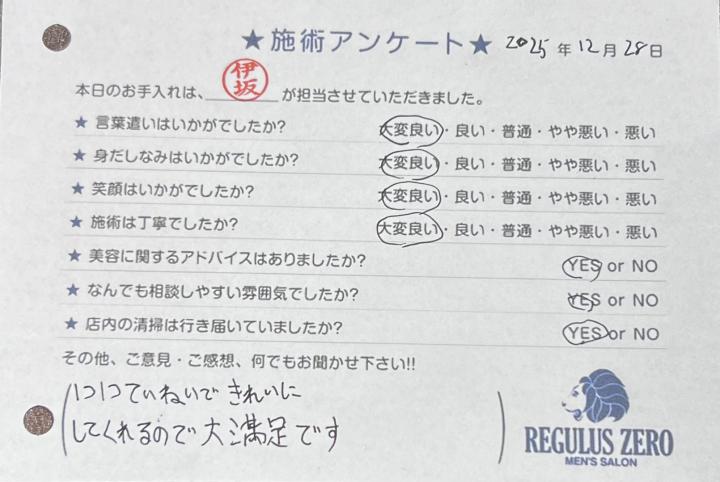 ★施術アンケート★ 2025年12月28日
本日のお手入れは、伊坂が担当させていただきました。
★ 言葉遣いはいかがでしたか? 大変良い・良い・普通・やや悪い・悪い
★ 身だしなみはいかがでしたか? 大変良い・良い・普通・やや悪い・悪い
★ 笑顔はいかがでしたか? 大変良い・良い・普通・やや悪い・悪い
★ 施術は丁寧でしたか? 大変良い・良い・普通・やや悪い・悪い
★ 美容に関するアドバイスはありましたか? YES or NO
★ なんでも相談しやすい雰囲気でしたか? YES or NO
★ 店内の清掃は行き届いていましたか? YES or NO
その他、ご意見・ご感想、何でもお聞かせ下さい!!
1つ1つていねいできれいに
してくれるので大満足です
REGULUS ZERO
MEN'S SALON